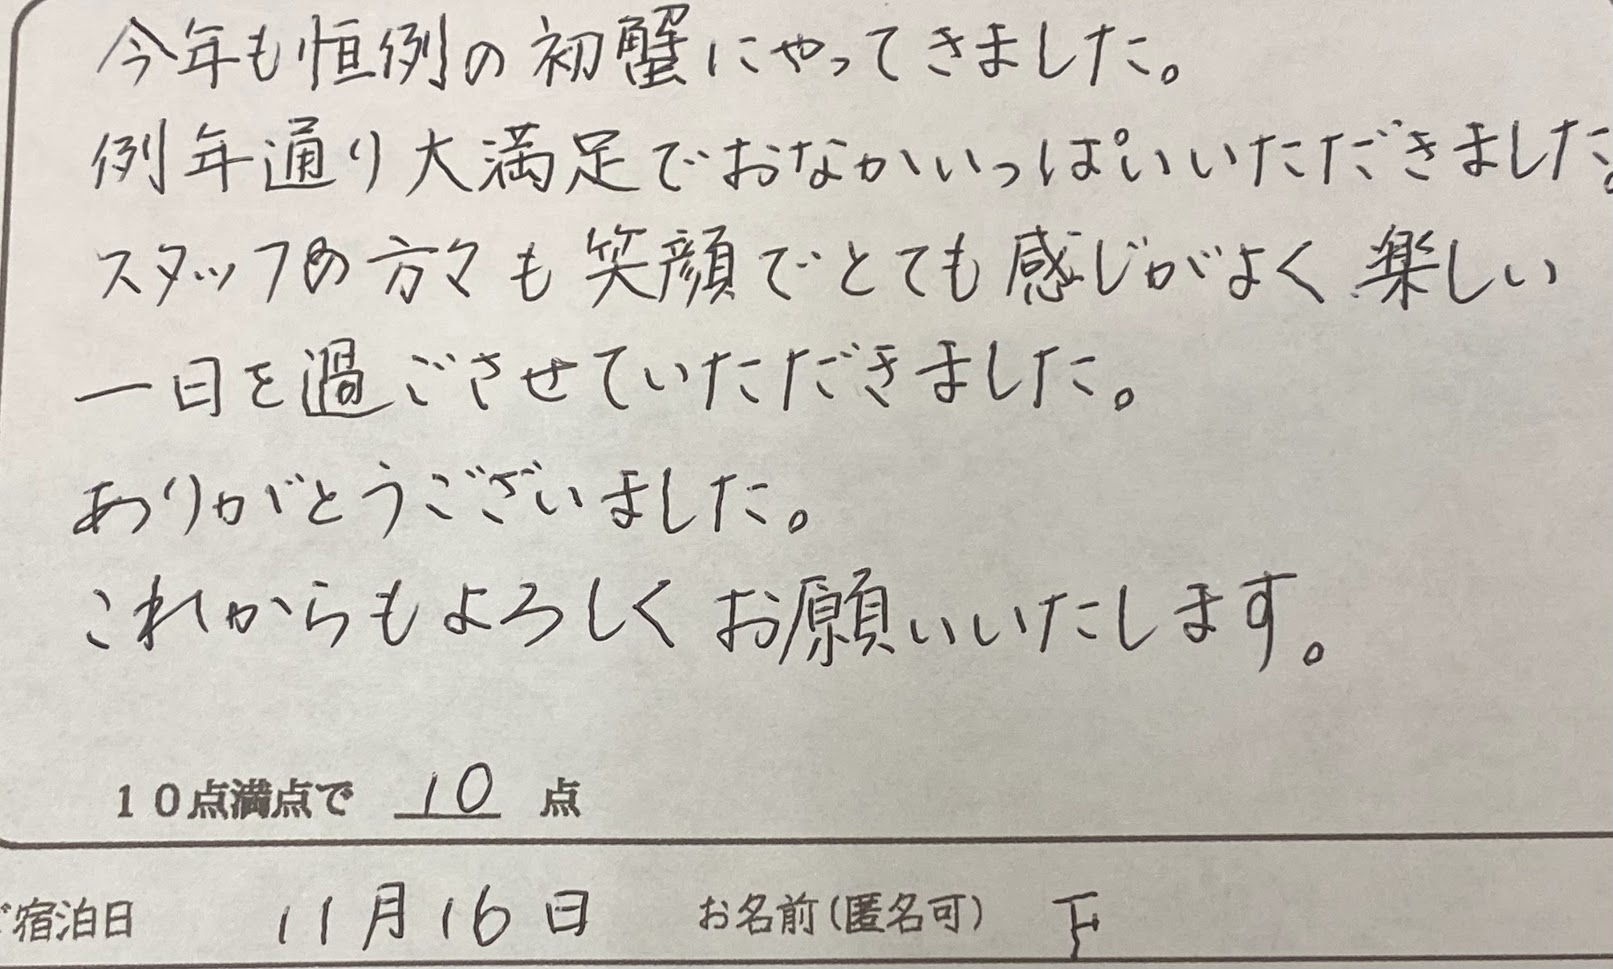 今年も恒例の初蟹にやってきました。
例年通り大満足でおなかいっぱいいただきました。
スタッフの方々も笑顔でとても感じがよく楽しい
一日を過ごさせていただきました。
ありがとうございました。
これからもよろしくお願いいたします。
10点満点で 10 点
ご宿泊日 11月16日 お名前(匿名可) F